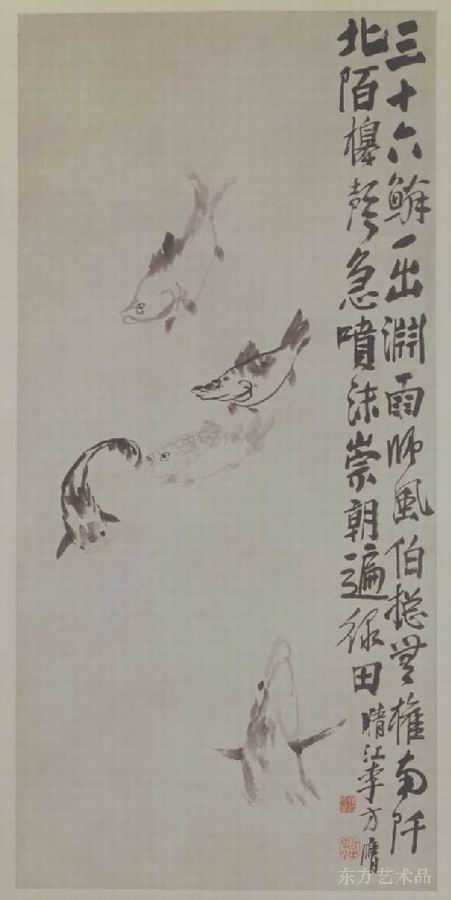 三十六鱗一出淵雨師風伯摠無權南阡
北陌槔聲急噴沫崇朝遍綠田
晴江李方膺
东方艺术品